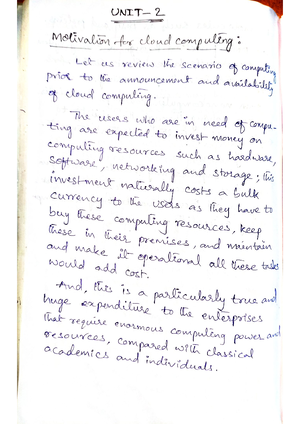 UNIT-2
Motivation for cloud computing:
Let us review the scenario of computing
prior to the announcement and availability
of cloud computing.
The users who are in need of compu-
ting are expected to invest money on
computing resources such as hardware,
software, networking and storage; this
investment naturally costs a bulk
currency to the users as they have to
buy these computing resources, keep
these in their premises, and maintain
and make it operational all these tasks
would add cost.
And, this is a particularly true and
huge expenditure to the enterprises
that require enormous computing power and
resources, compared with classical
academics and individuals.